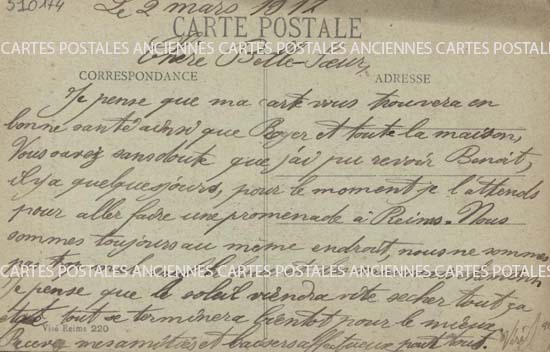 510174
Le 2 mars 191
CARTE POSTALE
CARTES POSTALES ANCIENNES CARTES POSTALES ANCIENNES CARTES POSTALES ANCIENNES
Chère Belle-Sœur,
CORRESPONDANCE
ADRESSE
Je pense que ma carte vous trouvera en
bonne santé ainsi que Royer et toute la maison,
Vous savez sans doute que j'ai pu revoir Benoit,
il y a quelques jours, pour le moment je l'attends
pour aller faire une promenade à Reims. Nous
sommes toujours au même endroit, nous ne sommes
pas trop
CARTES POSTALES ANCIENNES CARTES POSTALES ANCIENNES CARTES POSTALES ANCIENNES
Je pense que le soleil viendra vite secher tout ça
et tout se terminera bientot pour le mieux
Visé Reims 220
CARTES POSTALES ANCIENNES CARTES POSTALES ANCIENNES CARTES POSTALES ANCIENNES
Recevez mes amitiés et baisers affectueux pour tous.